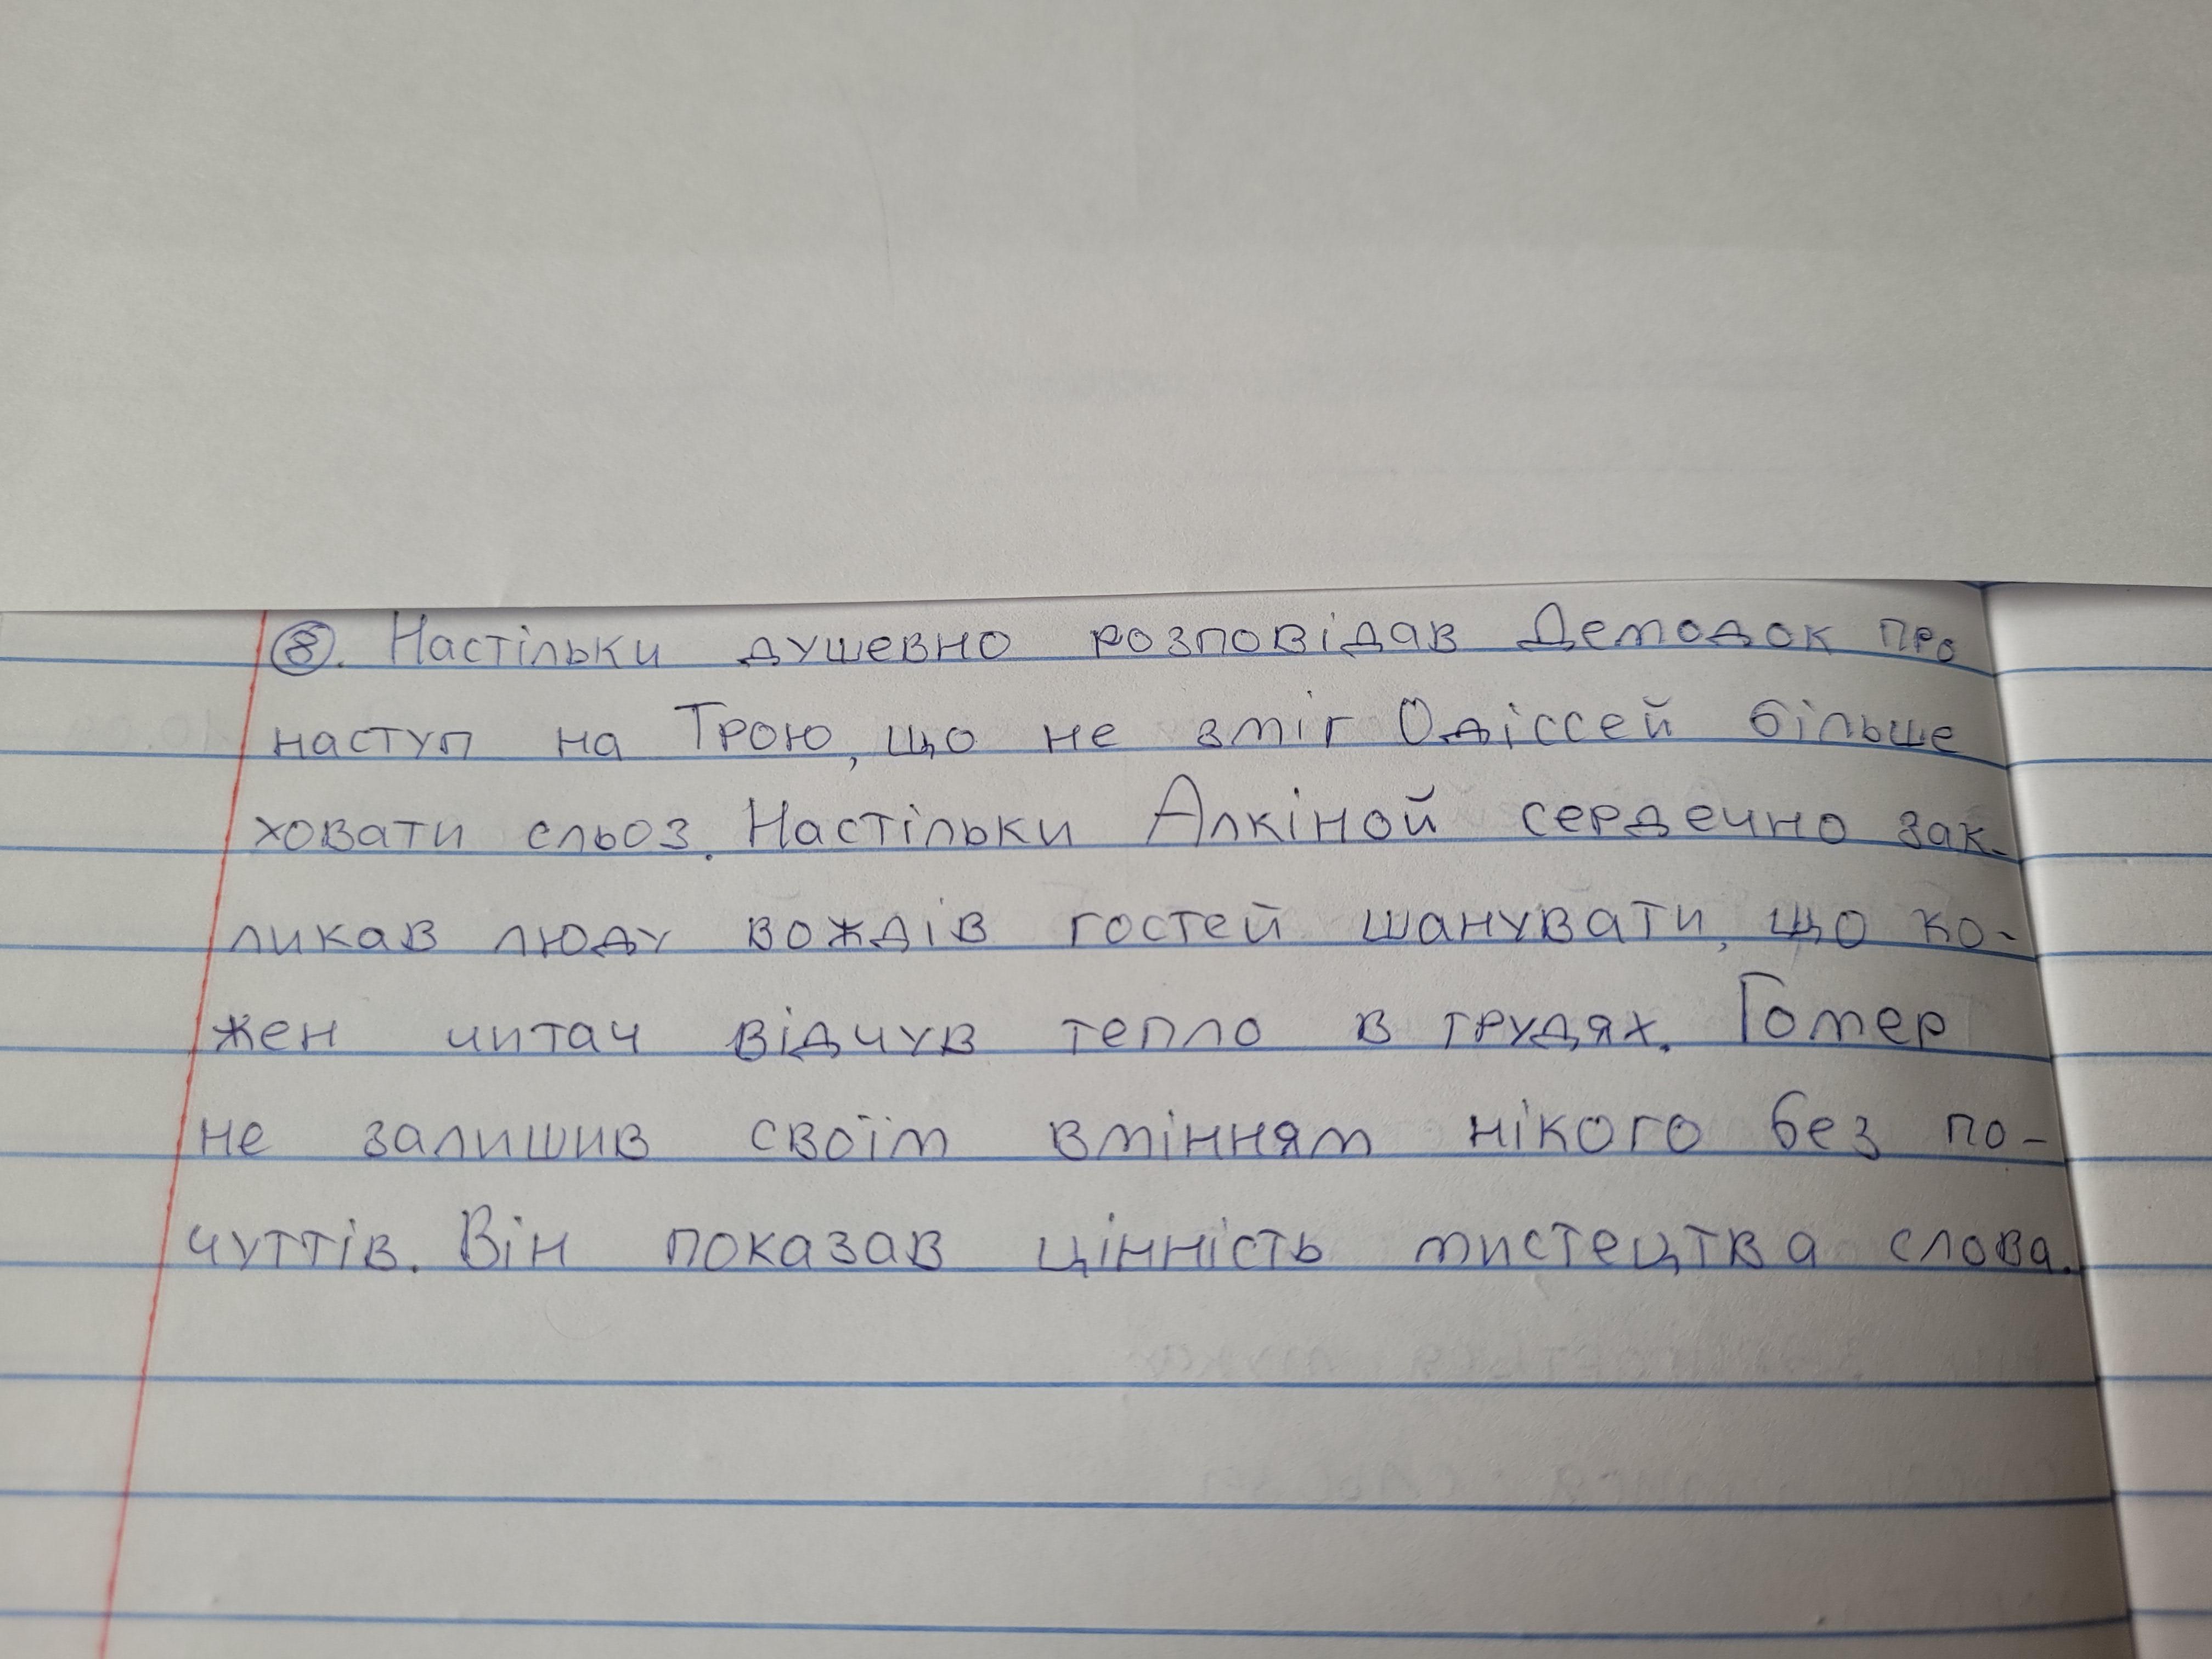 ⑧. Настільки душевно розповідав Демодок про
наступ на Трою, що не зміг Одіссей більше
ховати сльоз. Настільки Алкіной сердечно зак-
ликав люду вождів гостей шанувати, що ко-
жен читач відчув тепло в грудях. Гомер
не залишив своїм вмінням нікого без по-
чуттів. Він показав цінність мистецтва слова.